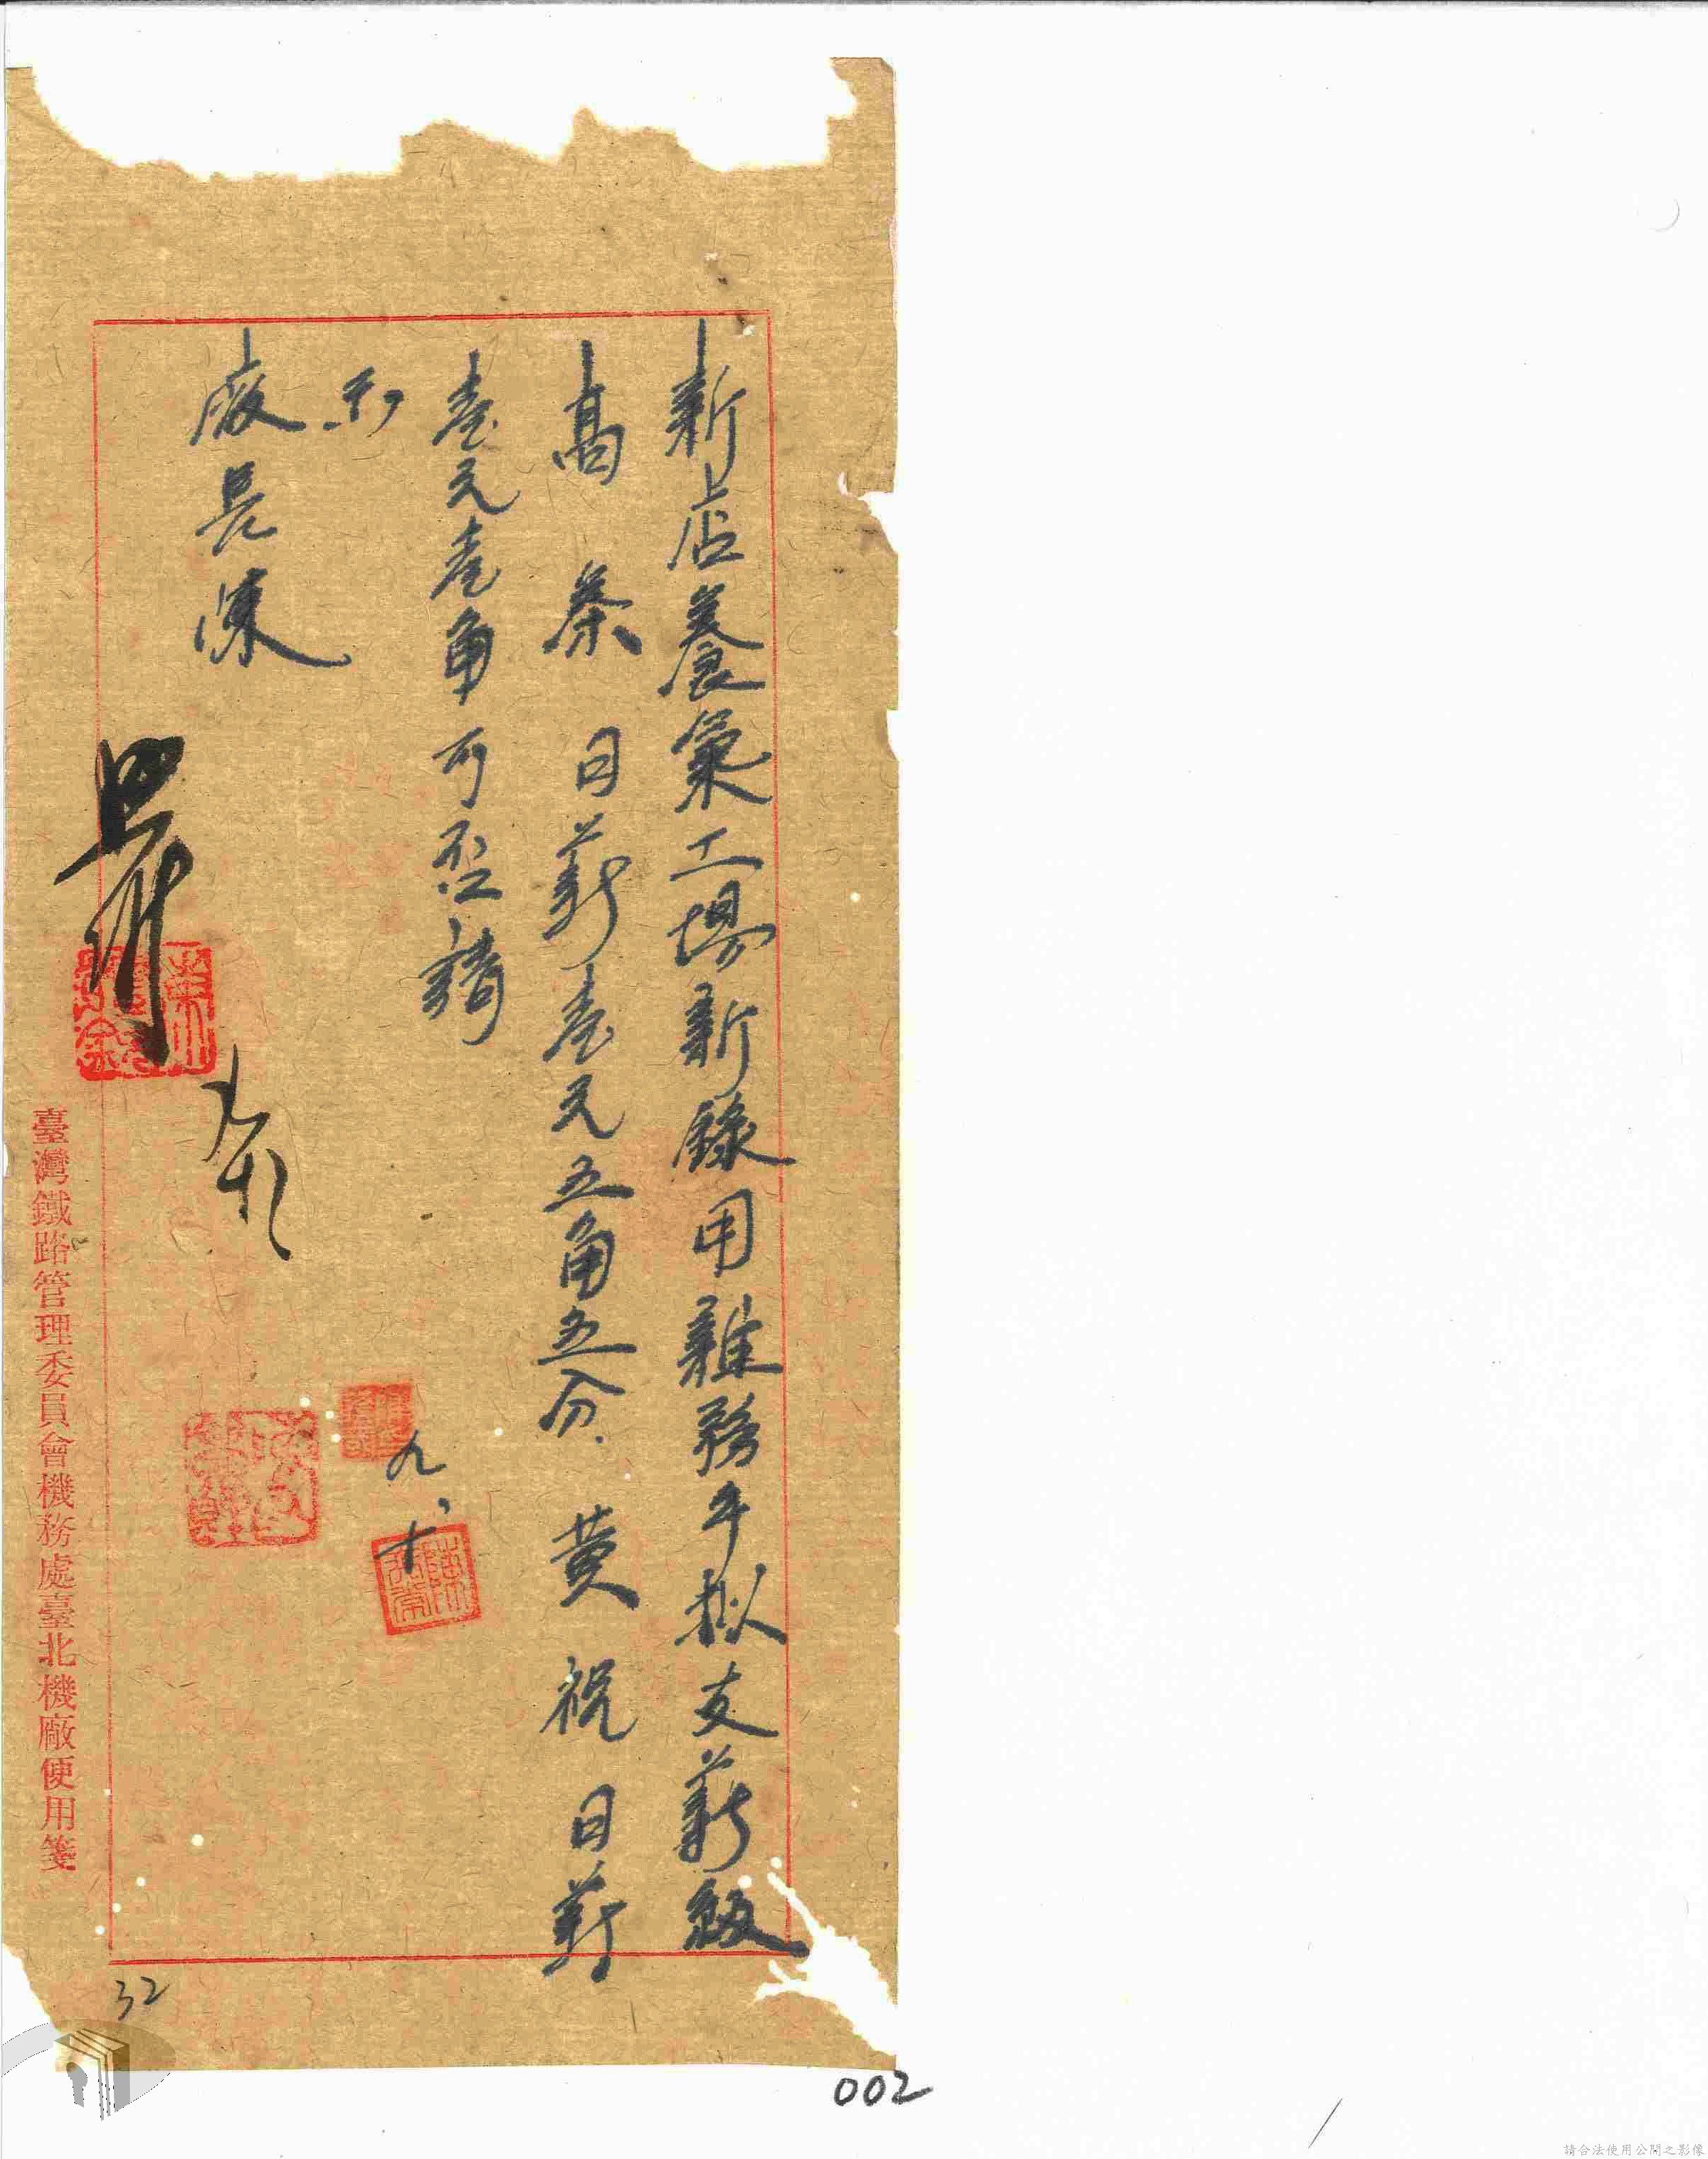 新店養氣工場新錄用雜務手拟支薪級
高泰日薪壹元五角五分.黄祝日薪
壹元壹角可否請
示
廠長陳
九、十
臺灣鐵路管理委員會機務處臺北機廠便用箋
32
002
請合法使用公開之影像